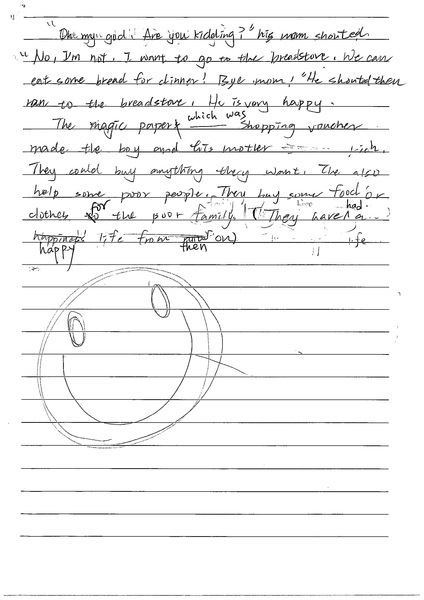 "Oh my god! Are you kidding?" his mom shouted.
"No, I'm not. I want to go to the breadstore. We can
eat some bread for dinner! Bye mom!" He shouted then
ran to the breadstore. He is very happy.
The magic paper which was shopping voucher
made the boy and his mother rich.
They could buy anything they want. The also
help some poor people. They buy some food or
clothes for the poor family. (They have had a
happy life from then on)
life